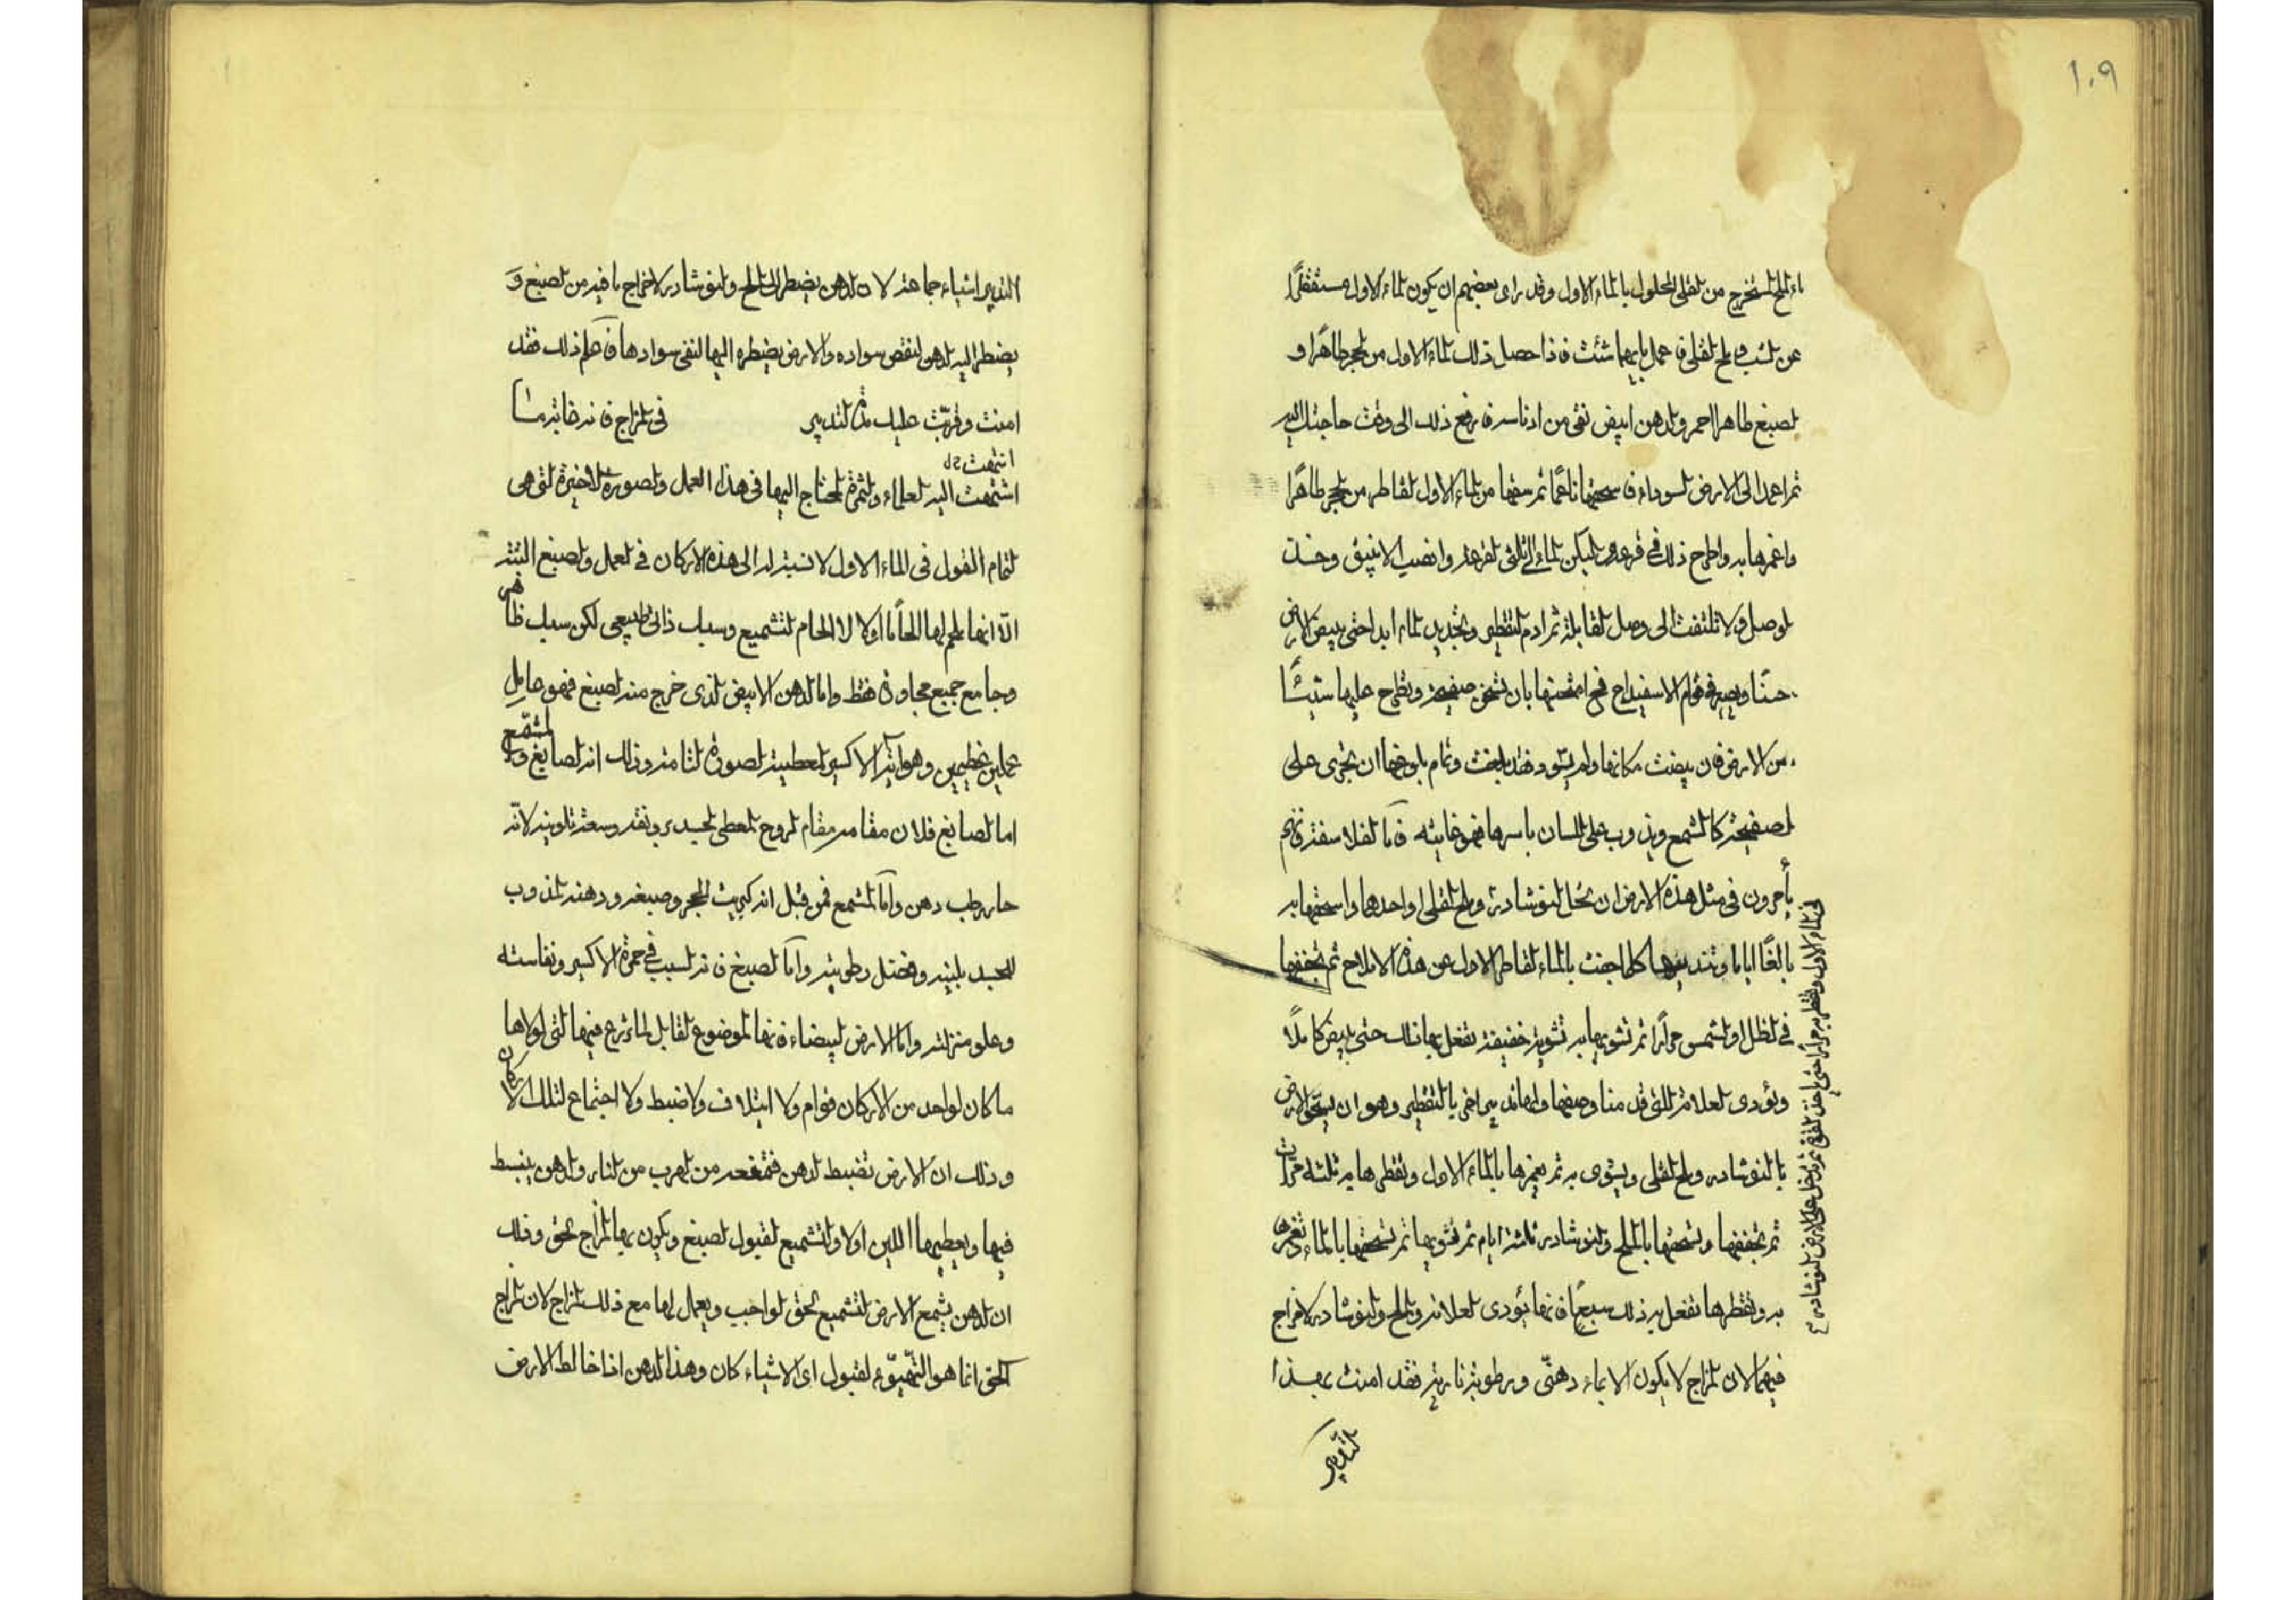 ١٠٩
اء الملح المستخرج من الثفل المحلول بالماء الاول وقد راى بعضهم ان يكون الماء الاول مستقطرًا
عن الشب وملح القلى فاعمل بايهما شئت فاذا حصل ذلك الماء الاول من الحجر طاهرًا و
الصبغ طاهرا احمر والدهن ابيض نقى من ادناسه فارفع ذلك الى وقت حاجتك اليه
ثم اعمد الى الارض السوداء فاسحقها ناعمًا ثم سقها من الماء الاول القاطر من الحجر طاهرًا
واغمرها به واطرح ذلك فى قرعة وليكن الماء الى ثلثى القرعة وانصب الانبيق وخذ
الوصل ولا تلتفت الى وصل القابلة ثم ادم التقطير وتجديد الماء ابدا حتى يبيض الارض
حسنًا ويصير فى قوام الاسفيداج فح امتحنها بان تحمى صفيحة وتطرح عليها شيئًا
من الارض فان بيضت مكانها ولم يسود فقد بلغت وتمام بلوغها ان تجرى على
الصفيحة كالشمع ويذوب على اللسان باسرها فهو غايته فاما الفلاسفة فانهم
يأمرون فى مثل هذه الارض ان تحل النوشادر وملح القلى او احدها واسحقها به
بالغًا اياما وتندبها كلما جفت بالماء القاطر الاول عن هذه الاملاح ثم تجففها
فى الظل او الشمس مرارًا ثم تشويها به تشوية خفيفة تفعل بها ذلك حتى يبيض كاملًا
ويؤدى العلامة التى قدمنا وصفها ولها تدبير اخر بالتقطير وهو ان يسحق الارض
بالنوشادر وملح القلى ويشوى به ثم يغمرها بالماء الاول وتقطرها به ثلثة مرات
ثم تجففها وتسحقها بالملح والنوشادر ثلثة ايام ثم تشويها ثم تسحقها بالماء وتغمرها
به وتقطرها تفعل به ذلك سبعًا فانها يؤدى العلامة والملح والنوشادر لاخراج
فيهما لان المزاج لا يكون الا بماء دهنى ورطوبة نارية فقد امنت بهذا
التدبير
التدبير اشياء جماعة لان الدهن يضطر الى الملح والنوشادر لاخراج ما فيه من الصبغ و
يضطر اليه الدهن لنقص سواده والارض يضطره اليها لنفى سوادها فاعلم ذلك فقد
امنت وقربت عليك هذا التدبير فى المزاج فانه غاية ما
انتهت
اشتهت اليه العلماء والثمرة المحتاج اليها فى هذا العمل والصورة الاخيرة التى هى
التمام القول فى الماء الاول لا نسبة له الى هذه الاركان فى العمل والصبغ البتة
الا انها يلحم لها الحاما اولا لا الحام التشميع وسبك ذاتى طبيعى لكن سبك ظاهر
وجامع جميع مجاورة فقط واما الدهن الابيض الذى خرج منه الصبغ فهو عامل
عملين عظيمين وهو اية الاكسير المعطية الصورة التامة وذلك انه الصابغ والمشمع
اما الصابغ فلان مقامه مقام الروح المعطى الجسد رونقه وسعة تلوينه لانه
حار رطب دهن واما المشمع فمن قبل انه كبريت الحجر وصبغه ودهنه المذوب
الجسد بلينه وفضل رطوبته واما الصبغ فانه السبب فى حمرة الاكسير ونفاسته
وعلو منزلته واما الارض البيضاء فانها الموضوع القابل الماء زرع فيها التى لولاها
ما كان لواحد من الاركان قوام ولا ايتلاف ولا ضبط ولا اجتماع لتلك الاركان
وذلك ان الارض تضبط الدهن فتمنعه من الهرب من النار والدهن ينبسط
فيها ويعطيها اللين اولا والتشميع لقبول الصبغ ويكون بها المزاج الحق وذلك
ان الدهن يشمع الارض التشميع الحق الواجب ويعمل لها مع ذلك المزاج لان المزاج
الحق انما هو التهيؤ لقبول اى الاشياء كان وهذا الدهن اذا خالط الارض